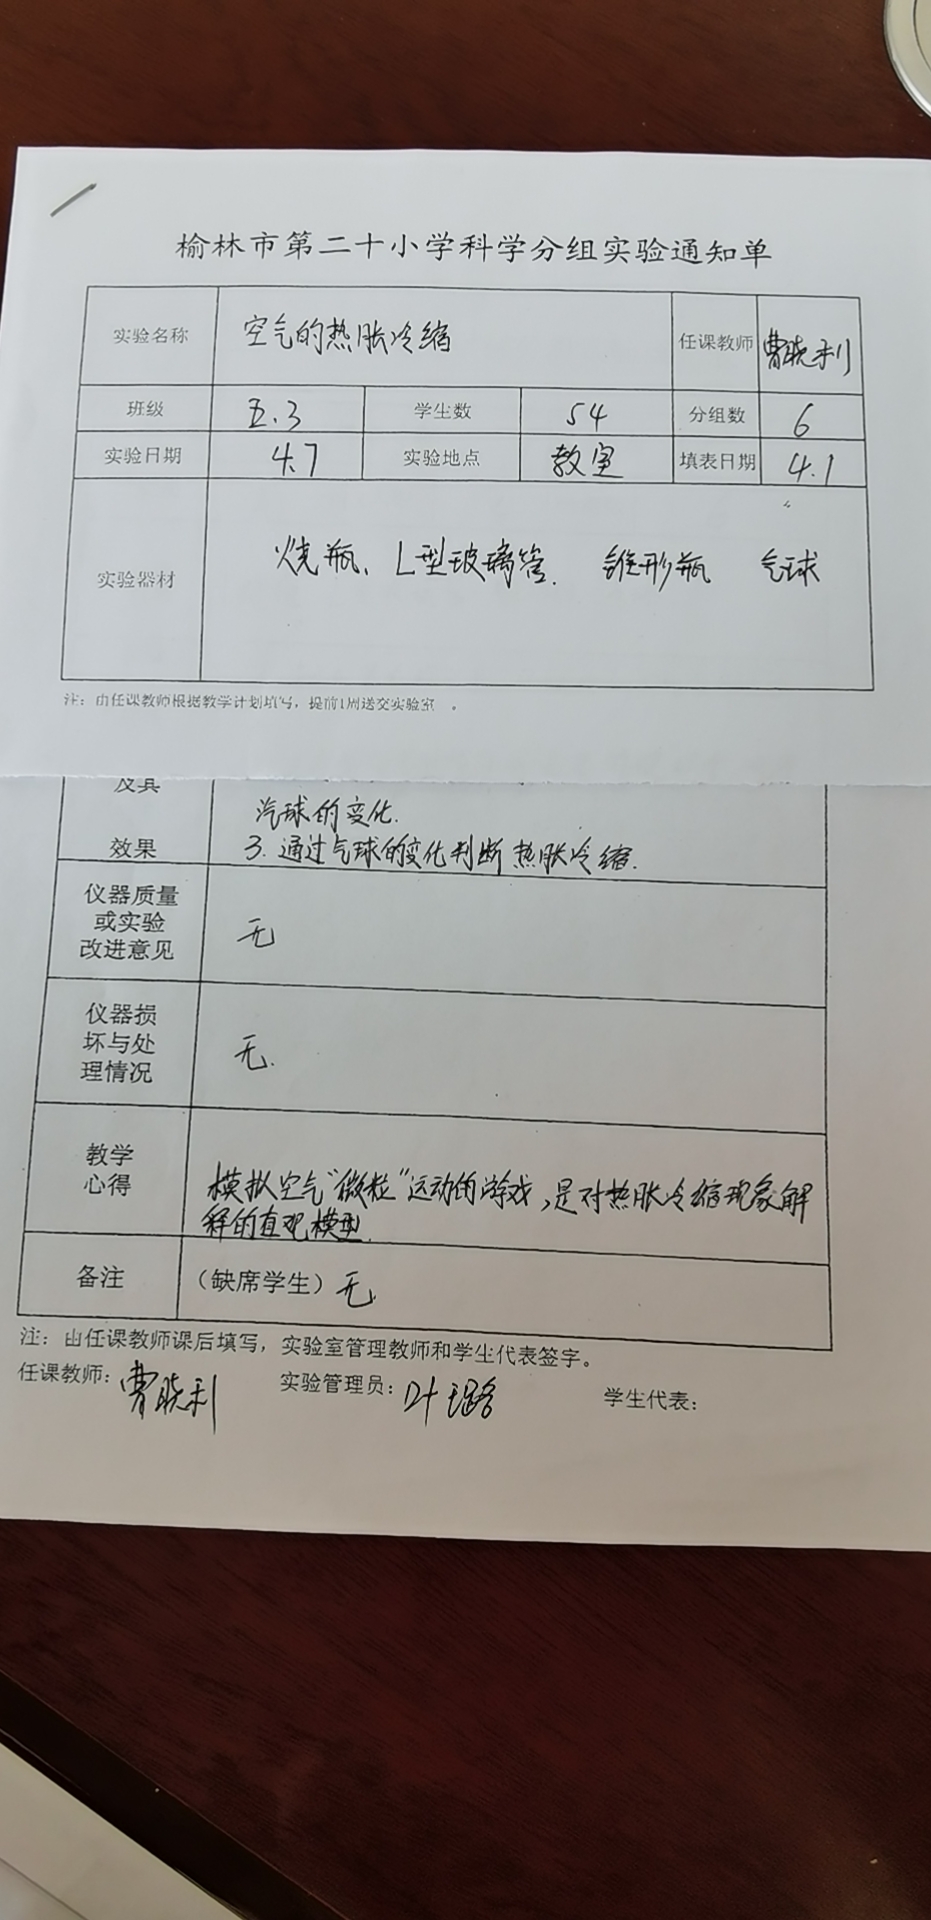 榆林市第二十小学科学分组实验通知单
实验名称 空气的热胀冷缩 任课教师 曹晓利
班级 五.3 学生数 54 分组数 6
实验日期 4.7 实验地点 教室 填表日期 4.1
实验器材 烧瓶、L型玻璃管. 锥形瓶 气球
注：由任课教师根据教学计划填写，提前1周送交实验室 。
及其
汽球的变化.
效果 3.通过气球的变化判断热胀冷缩.
仪器质量
或实验
改进意见
无
仪器损
坏与处
理情况
无.
教学
心得
模拟空气“微粒”运动的游戏,是对热胀冷缩现象解
释的直观模型.
备注 （缺席学生）无
注：由任课教师课后填写，实验室管理教师和学生代表签字。
任课教师：曹晓利 实验管理员：叶璐 学生代表：